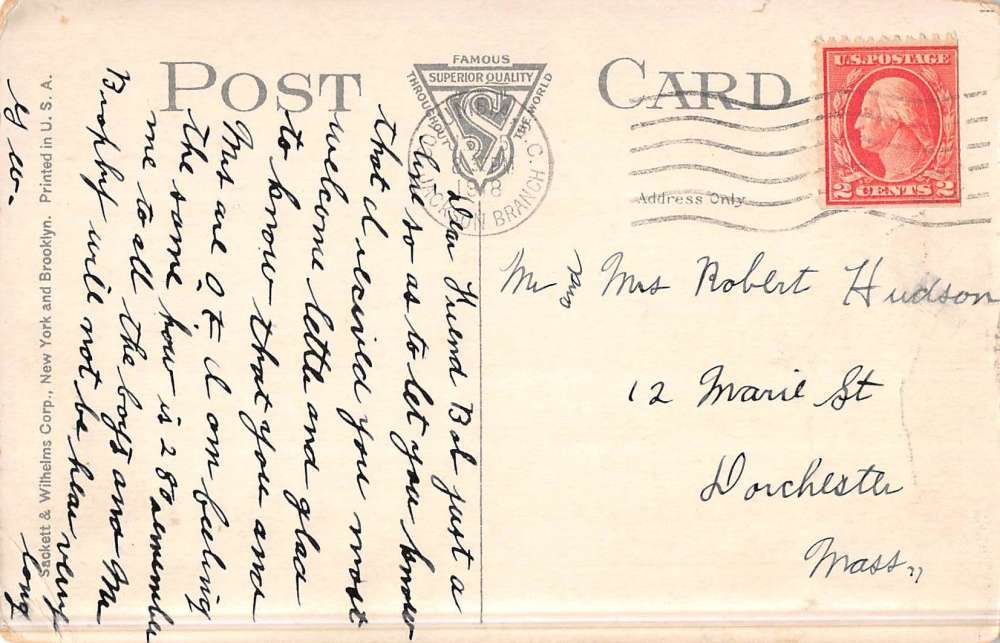 POST CARD
FAMOUS
SUPERIOR QUALITY
THROUGHOUT THE WORLD
S
JACKSON BRANCH
S.C.
U.S. POSTAGE
2 CENTS 2
Address Only
Mr and Mrs Robert Hudson
12 Marie St
Dorchester
Mass
Dear Friend Bob just a
line so as to let you know
that I recived you most
welcome letter and glad
to know that you and
Mrs are O.K I am feeling
the same how is 28 remember
me to all the boys and Mr
Brophy will not be hear very
long
Sackett & Wilhelms Corp., New York and Brooklyn. Printed in U. S. A.